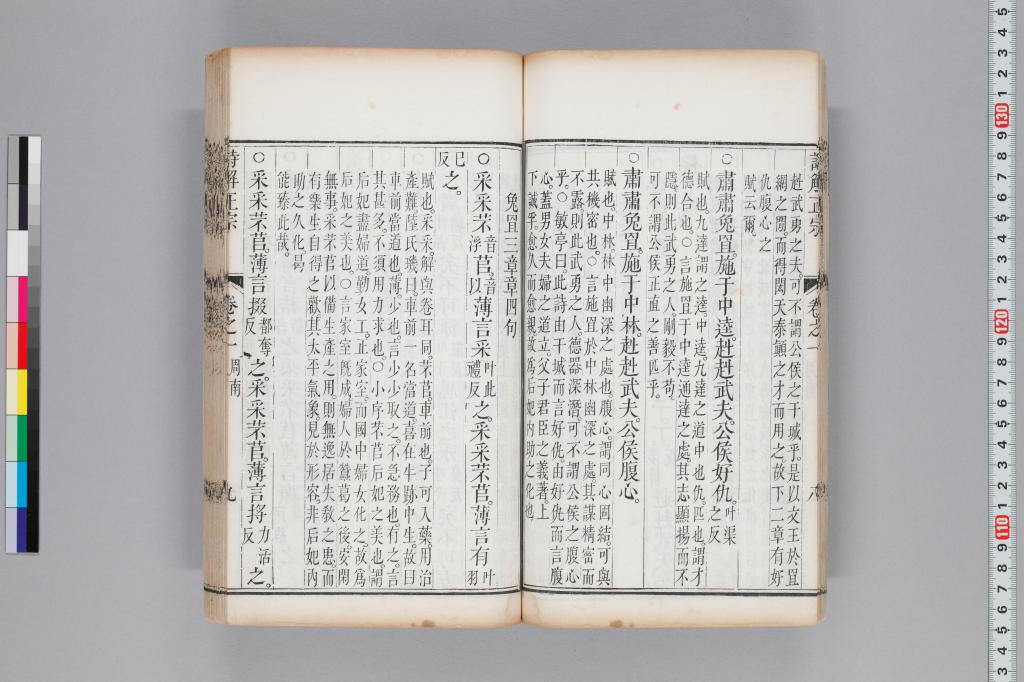 赳武勇之夫。可不謂公侯之干城乎。是以文王於罝
網之閒。而得閎夭泰顚之才而用之。故下二章有好
仇腹心之
賦云爾。
○肅肅兔罝。施于中逵。赳赳武夫。公侯好仇。叶渠之反
賦也。九達謂之逵。中逵。九達之道中也。仇匹也。謂才
德合也。○言施罝于中逵通達之處。其志顯揚而不
隱。則此武勇之人。剛毅不苟。
可不謂公侯正直之善匹乎。
○肅肅兔罝。施于中林。赳赳武夫。公侯腹心。
賦也。中林。林中幽深之處也。腹心。謂同心固結。可與
共機密也。○言施罝於中林幽深之處。其謀精密而
不露。則此武勇之人。德器深潛。可不謂公侯之腹心
乎。○敏亭曰。此詩由干城而言好仇。由好仇而言腹
心。蓋男女夫婦之道立。父子君臣之義著。上
下誠孚。愈久而愈親。故爲后妃内助之化也。
兔罝三章章四句
○采采芣音浮苢。音以薄言采叶此禮反之。采采芣苢。薄言有叶羽
已反之。
賦也。采采。解與卷耳同。芣苢。車前也。子可入藥。用治
產難。陸氏璣曰。車前一名當道。喜在牛跡中生。故曰
車前當道也。薄。少也。言少少取之。不急務也。有之。言
其甚多。不須用力求也。○小序。芣苢。后妃之美也。謂
后妃盡婦道。勤女工。正家室。而國中婦女化之。故爲
后妃之美也。○言家室既成。婦人於蠶葛之後。安閒
無事。采芣苢以備生產之用。則無逸居失敎之患。而
有樂生自得之歡。其太平氣象。見於形容。非后妃内
助之久化。曷
能臻此哉。
○采采芣苢。薄言掇都奪反之。采采芣苢。薄言捋力活反之。
詩解正宗
卷之一
周南
九
詩解正宗
卷之一
六